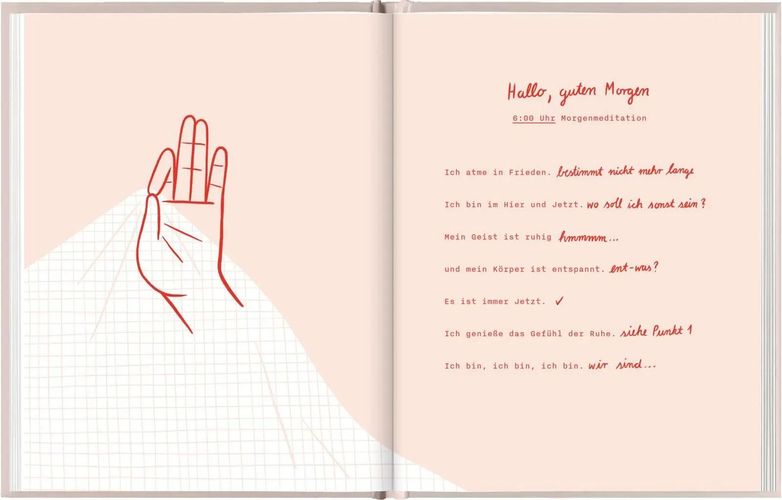 Hallo, guten Morgen
6:00 Uhr Morgenmeditation
Ich atme in Frieden. bestimmt nicht mehr lange
Ich bin im Hier und Jetzt. wo soll ich sonst sein?
Mein Geist ist ruhig hmmmm...
und mein Körper ist entspannt. ent-was?
Es ist immer Jetzt. ✓
Ich genieße das Gefühl der Ruhe. siehe Punkt 1
Ich bin, ich bin, ich bin. wir sind...